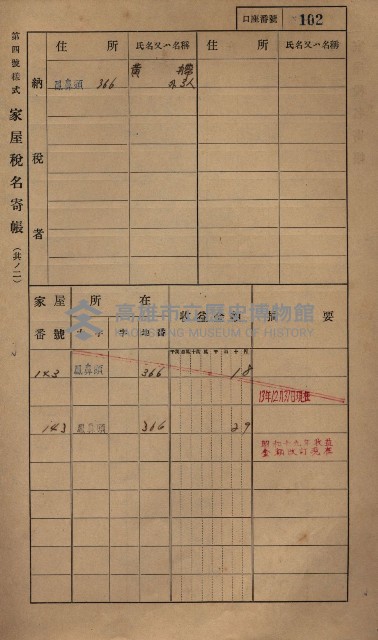 口座番號 102
第四號樣式 家屋稅名寄帳 (其ノ二)
納稅者
住所 氏名又ハ名稱 住所 氏名又ハ名稱
鳳鼻頭 366 黃 外3人
家屋番號 所在 收益金額 摘要
大字 字 地番
143 鳳鼻頭 366 18
13年12月31日現在
143 鳳鼻頭 366 29
昭和十九年收益
金額改訂
高雄市立歷史博物館
KAOHSIUNG MUSEUM OF HISTORY